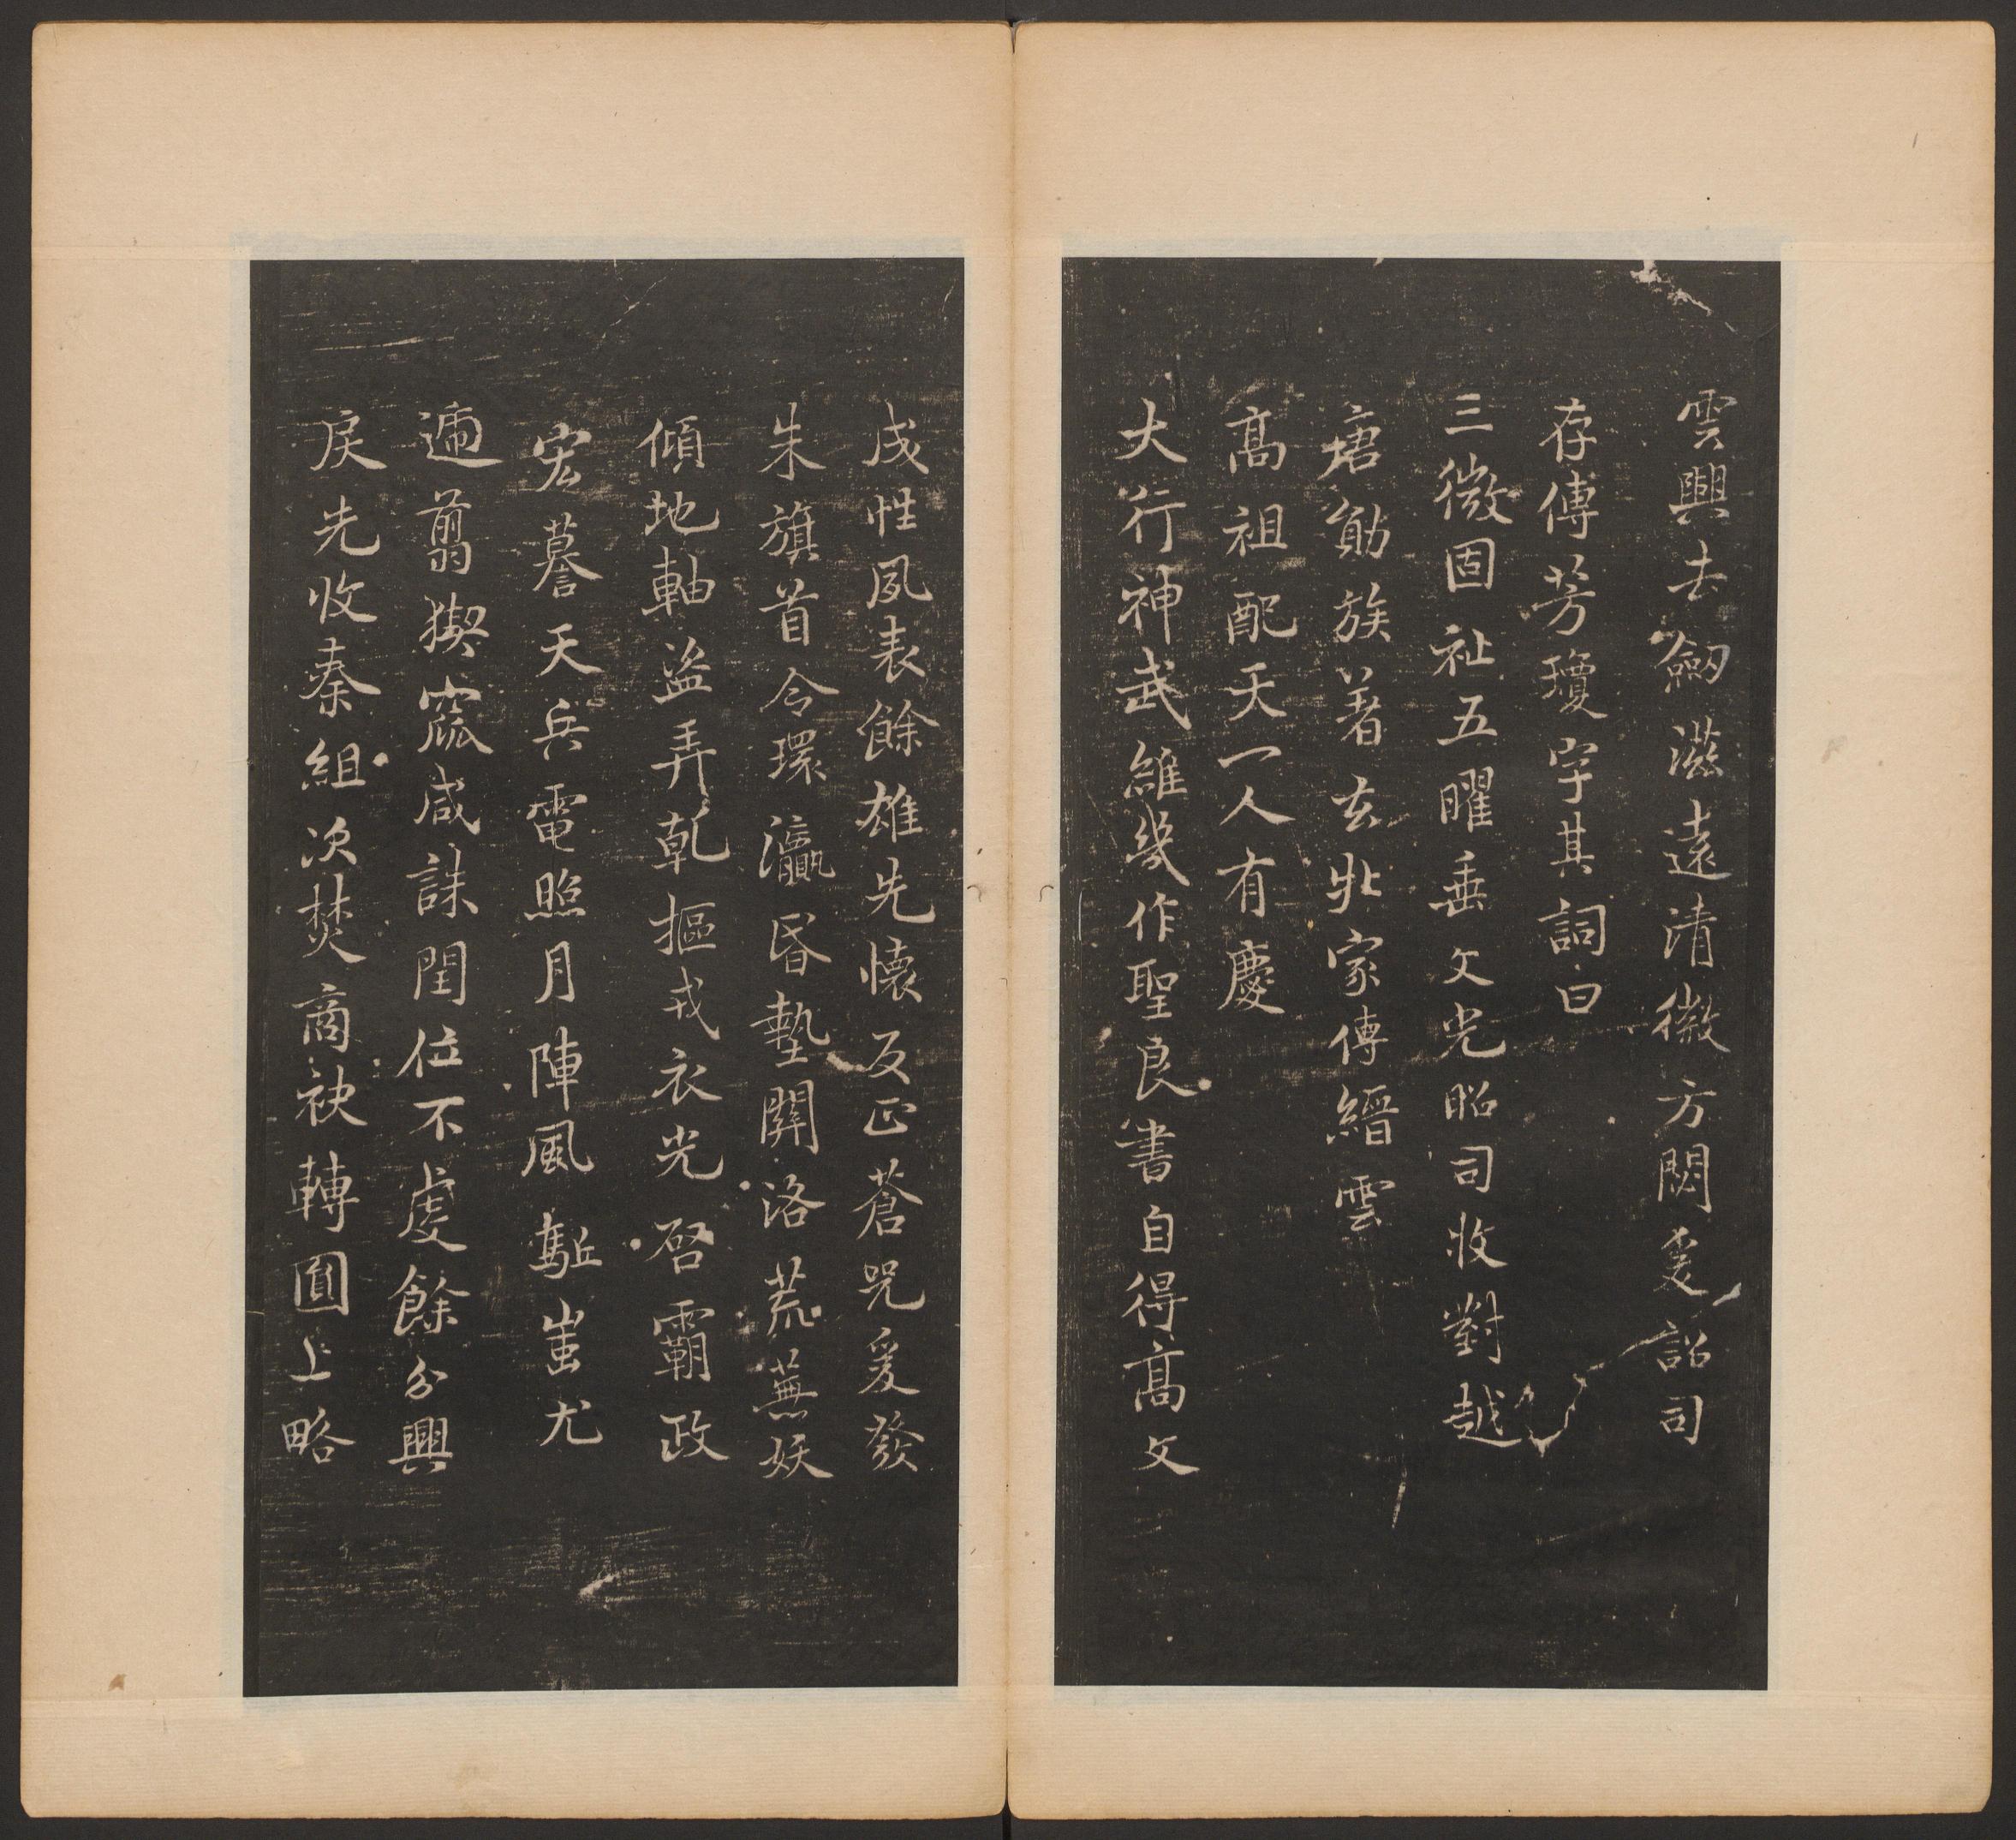 雲興去劒滋遠清徽方閟爰詔司
存傳芳瓊字其詞曰
三微固祉五曜垂文光昭司牧對越
唐勛族著玄牝家傳縉雲
高祖配天一人有慶
大行神武維幾作聖良書自得高文
成性夙表餘雄先懷反正蒼兕爰發
朱旗首令環瀛昏墊關洛荒蕪妖
傾地軸盜弄乾樞戎衣光啓霸政
宏謩天兵電照月陣風驅蚩尤
遄翦猰窳咸誅閏位不虔餘分興
戾先收秦組次焚商袂轉圓上略